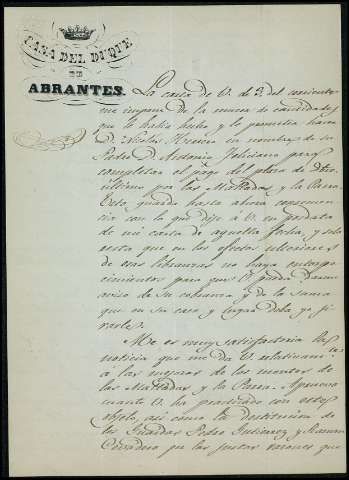 CASA DEL DUQUE
DE
ABRANTES.
La carta de V. de 3 del corriente
me impone de la nueva de cantidades
que le había hecho y le prometía hacer
D. Nicolás Herrero en nombre de su
Padre D. Antonio Feliciano para
completar el pago del plazo de
último por las Mattadas y la Parra.
Esto guarda hasta ahora consecuen-
cia con lo que dije á V. en posdata
de mi carta de aquella fecha, y solo
resta que en los efectos ulteriores
de esas libranzas no haya entorpe-
cimientos para que V. pueda darme
aviso de su cobranza y de la suma
que en su caso y lugar deba yo gi-
rarle.
Me es muy satisfactoria la
noticia que me da V. relativamte
á las mejoras de los montes de
las Mattadas y la Parra. Apruevo
cuanto V. ha practicado con este
objeto, así como la destitucion de
los Guardas Pedro Gutierrez y Ramon
por las justas razones que